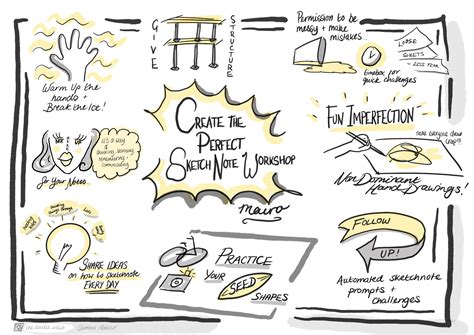 GIVE
STRUCTURE
Permission to be
messy + make
mistakes...
LOOSE
SHEETS
= LESS FEAR
timebox for
quick challenges
WARM UP the
hands +
BREAK the ICE!
CREATE THE
PERFECT
SKETCHNOTE WORKSHOP
FUN IMPERFECTION
make everyone draw
crap!!!
Non Dominant
Hand Drawings!
it's a way of
thinking, listening
remembering +
communicating
SHARE IDEAS
on how to sketchnote
EVERY DAY
PRACTICE
YOUR
SEED
SHAPES
FOLLOW
UP!
Automated sketchnote
prompts +
challenges